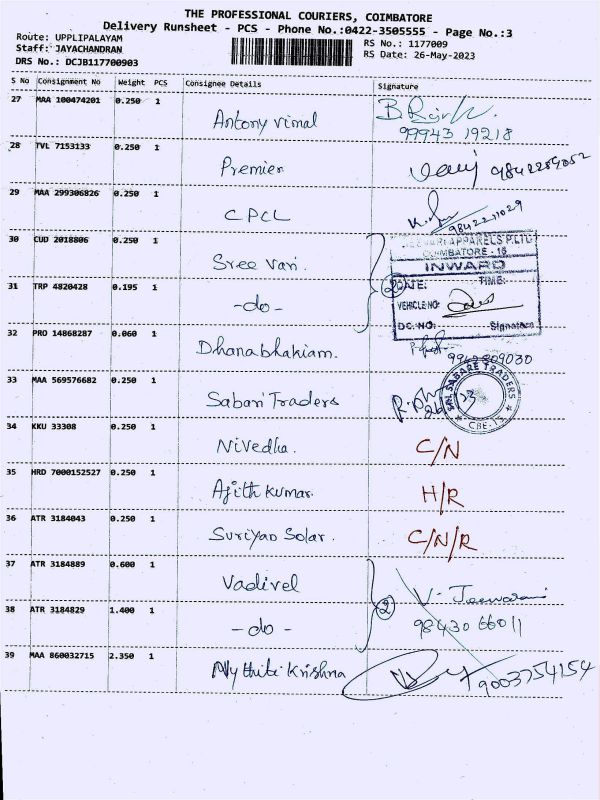 THE PROFESSIONAL COURIERS, COIMBATORE
Delivery Runsheet - PCS - Phone No.:0422-3505555 - Page No.:3
Route: UPPLIPALAYAM
Staff: JAYACHANDRAN
DRS No.: DCJB117700903
RS No.: 1177009
RS Date: 26-May-2023
S No Consignment No Weight PCS Consignee Details Signature
27 MAA 100474201 0.250 1 Antony Vimal
99943 19218
28 TVL 7153133 0.250 1 Premier 9842289052
29 MAA 299306826 0.250 1 CPCL 9842211029
30 CUD 2018806 0.250 1 Sree Vari.
APPARELS P.LTD
COIMBATORE - 15
INWARD
DATE: TIME:
VEHICLE NO:
DC. NO: Signature
31 TRP 4820428 0.195 1 -do- 2
32 PRO 14868287 0.060 1 Dhanabhakiam.
9942809030
33 MAA 569576682 0.250 1 Sabari Traders
SRI. SABARE TRADERS
CBE-15
34 KKU 33308 0.250 1 Nivedha. C/N
35 HRD 7000152527 0.250 1 Ajith Kumar. H/R
36 ATR 3184043 0.250 1 Suriyan Solar. C/N/R
37 ATR 3184889 0.600 1 Vadivel
38 ATR 3184829 1.400 1 -do- 2
98430 66011
39 MAA 860032715 2.350 1 Nythik Krishna 9003754154